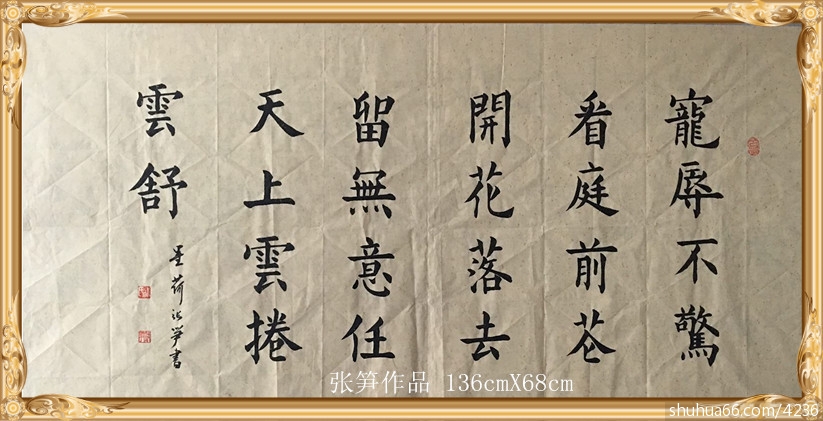 寵辱不驚
看庭前芲
開花落去
留無意任
天上雲捲
雲舒
荷张笋書
张笋作品 136cmX68cm
shuhua66.com/4236